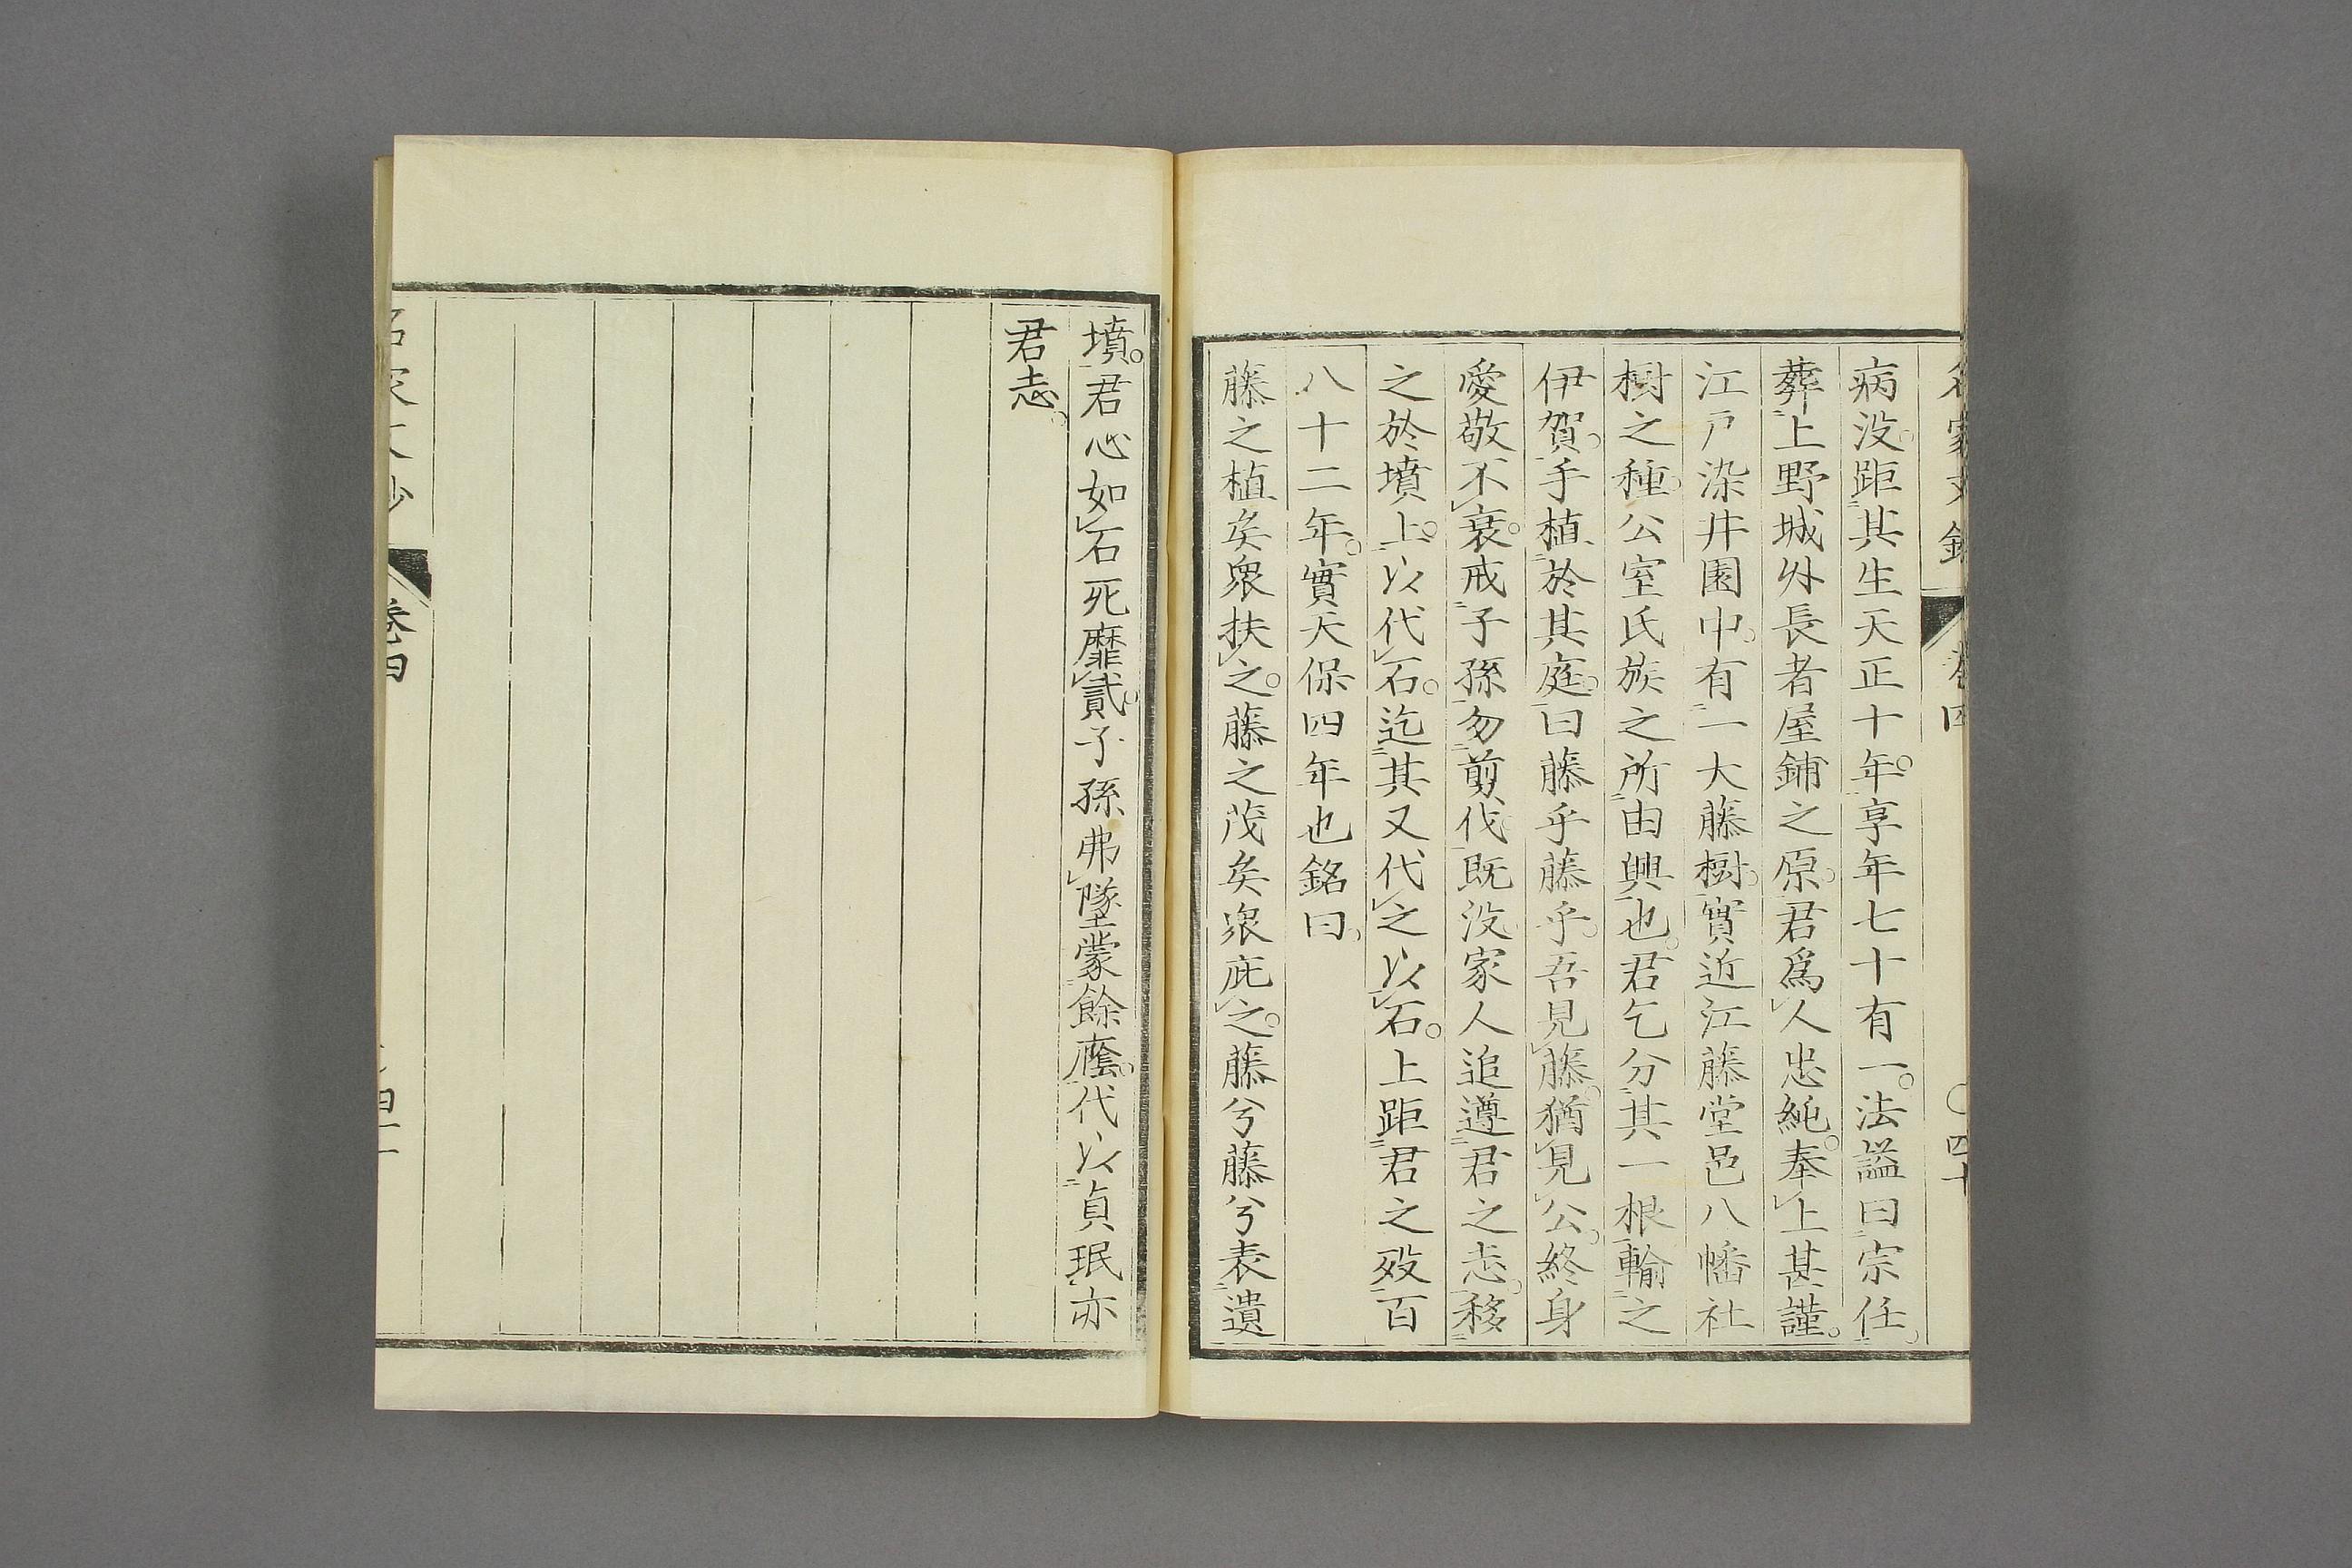 病没。距其生天正十年。享年七十有一。法謚曰宗任。
葬上野城外長者屋鋪之原。君爲人忠純。奉上甚謹。
江戸染井園中。有一大藤樹。實近江藤堂邑八幡社
樹之種。公室氏族之所由興也。君乞分其一根。輸之
伊賀。手植於其庭。曰藤乎藤乎。吾見藤。猶見公。終身
愛敬不衰。戒子孫勿剪伐。既没。家人追遵君之志。移
之於墳上。以代石。迄其又代之以石。上距君之殁百
八十二年。實天保四年也銘曰。
藤之植矣衆扶之。藤之茂矣衆庇之。藤兮藤兮表遺
墳。君心如石死靡貳。子孫弗墜蒙餘廕。代以貞珉亦
君志。
卷四